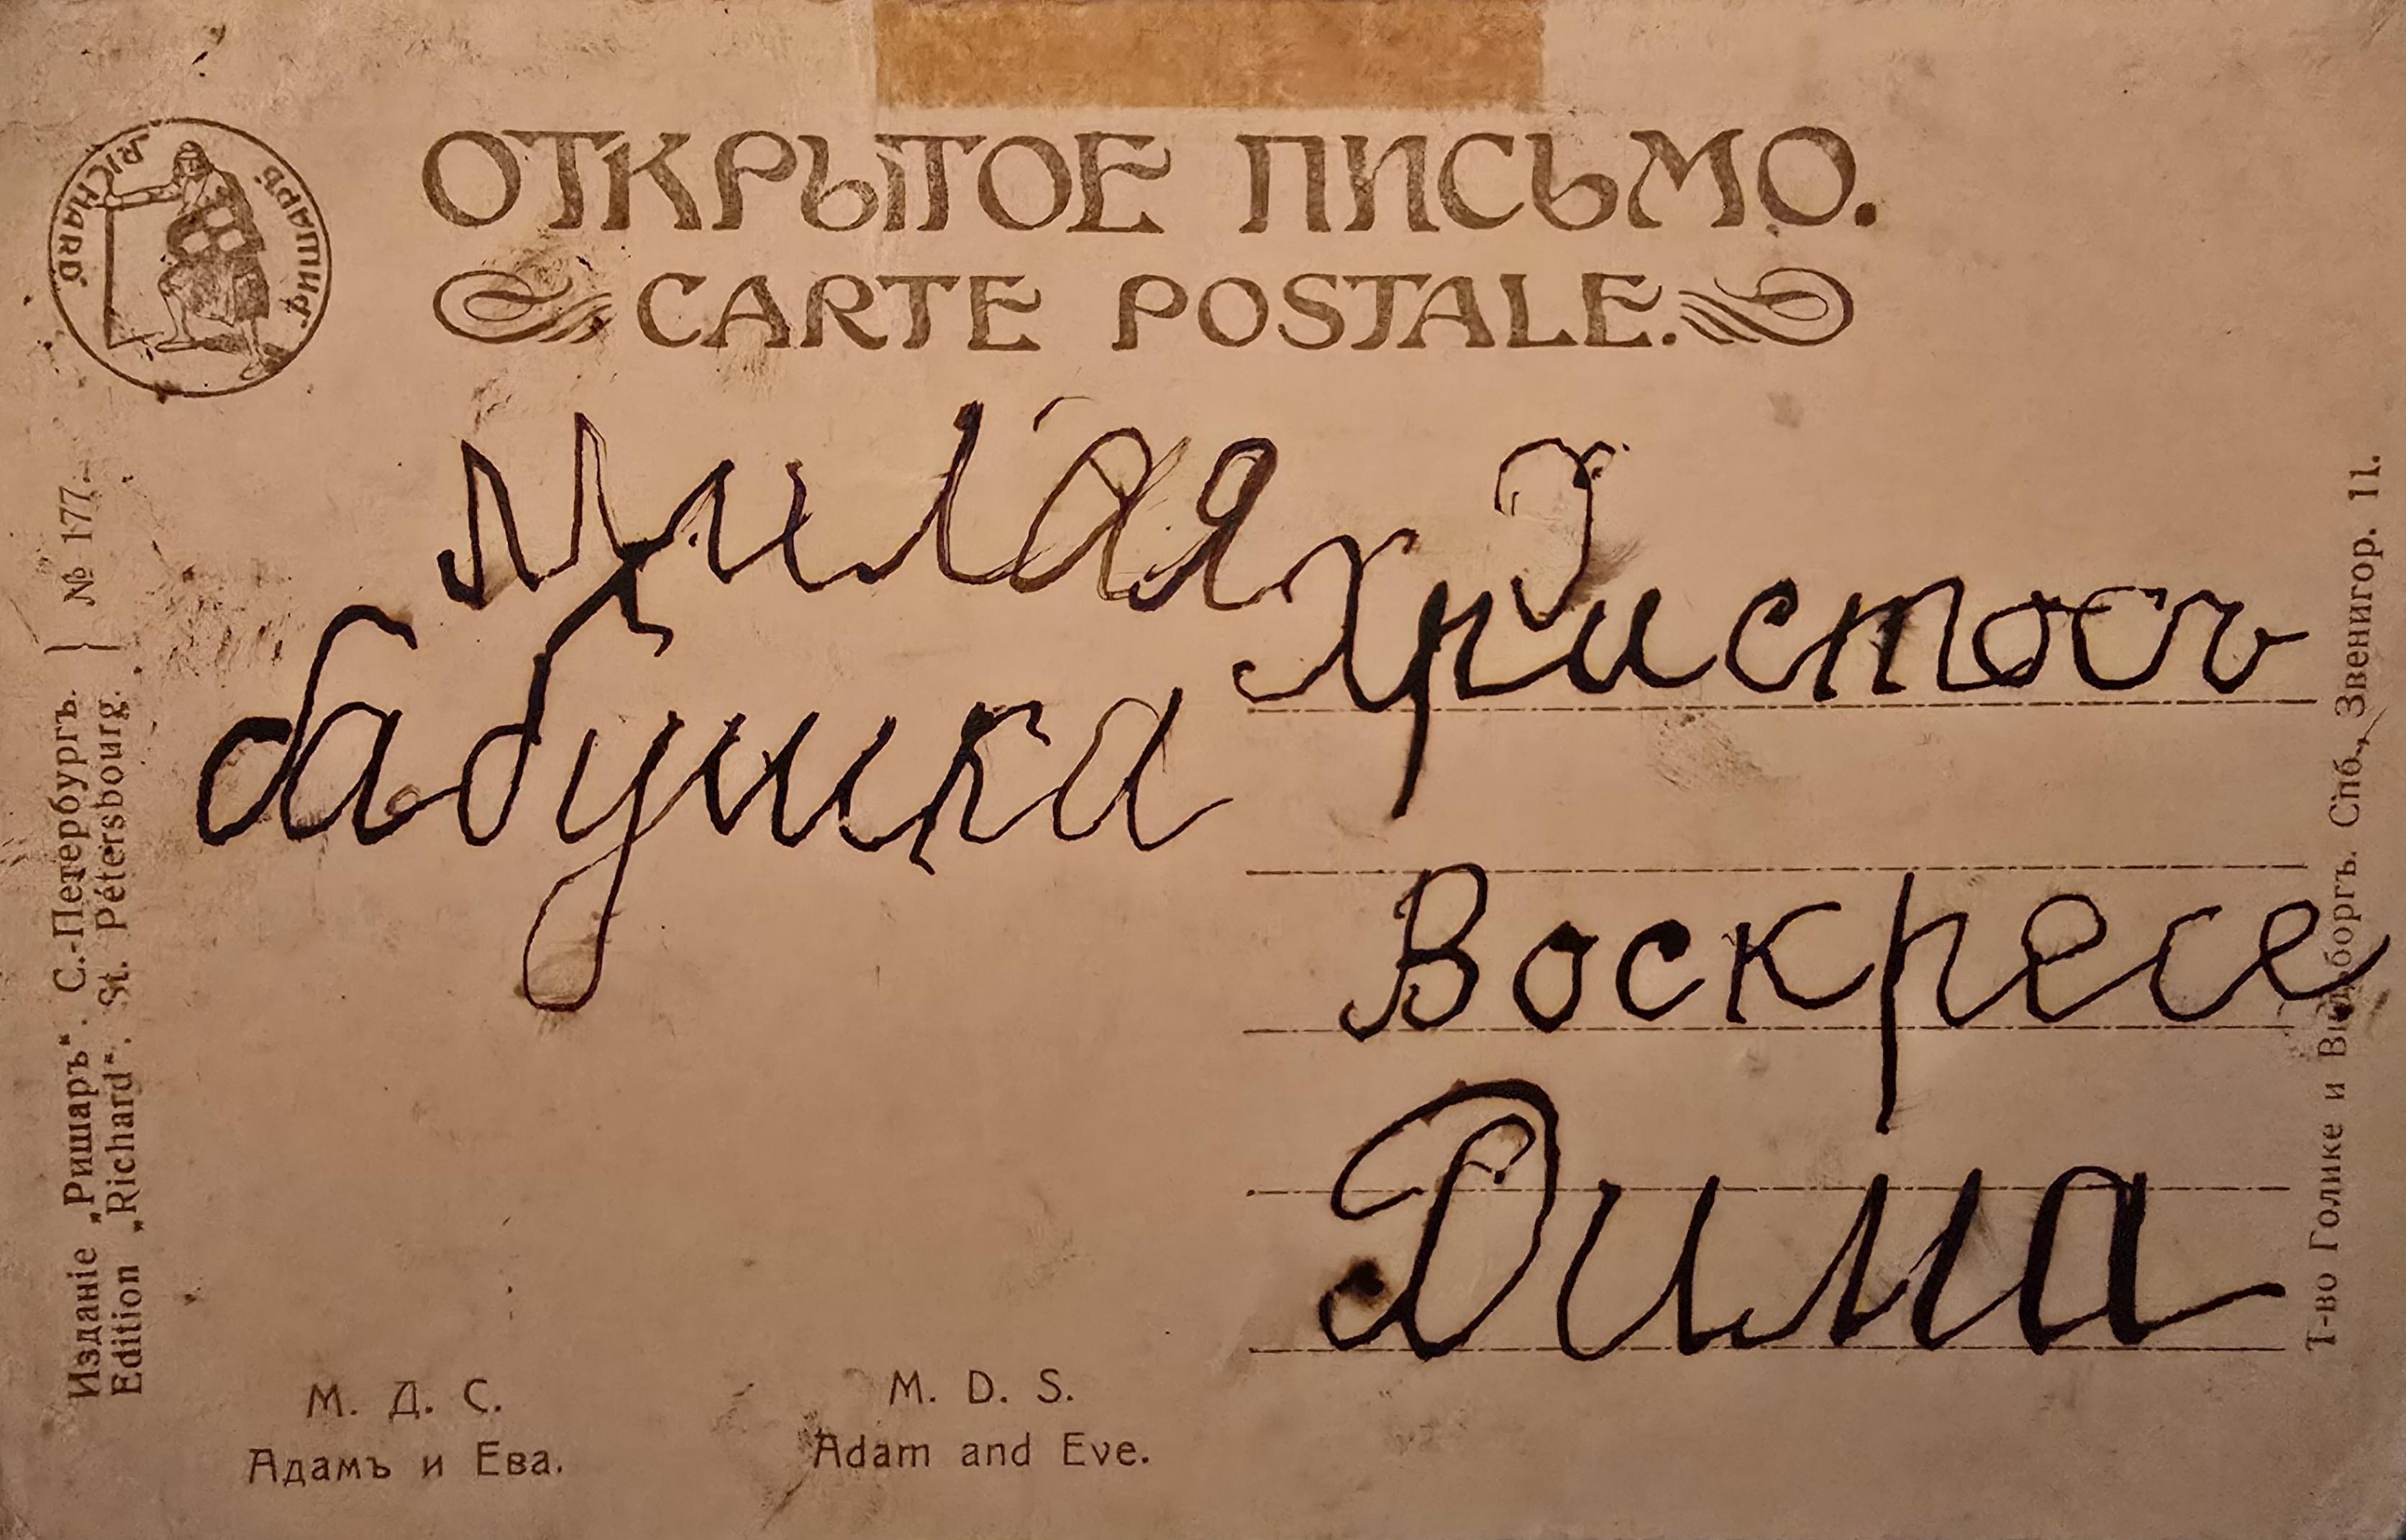 РИШАРЪ
RICHARD
ОТКРЫТОЕ ПИСЬМО.
CARTE POSTALE.
Милая
бабушка
Христосъ
Воскресе
Дима
Изданіе „Ришаръ“. С.-Петербургъ.
Edition „Richard“. St. Pétersbourg.
№ 177.
М. Д. С.
Адамъ и Ева.
M. D. S.
Adam and Eve.
Т-во Голике и Вильборгъ. Спб., Звенигор. 11.